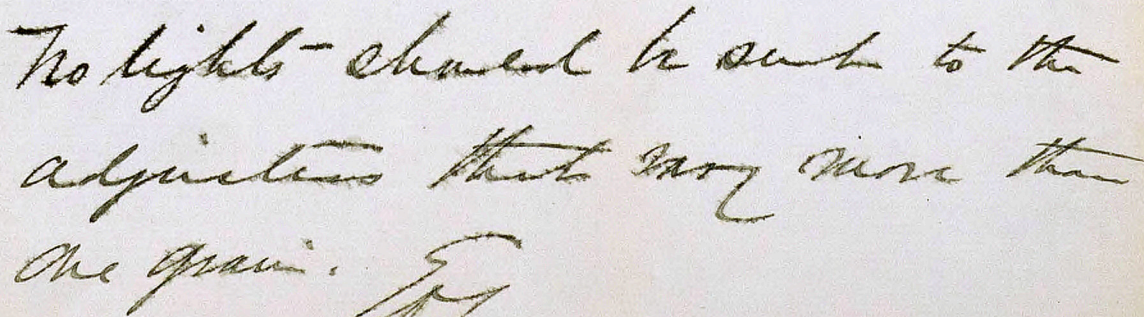 No lights should be sent to the
adjusters that vary more than
one grain.